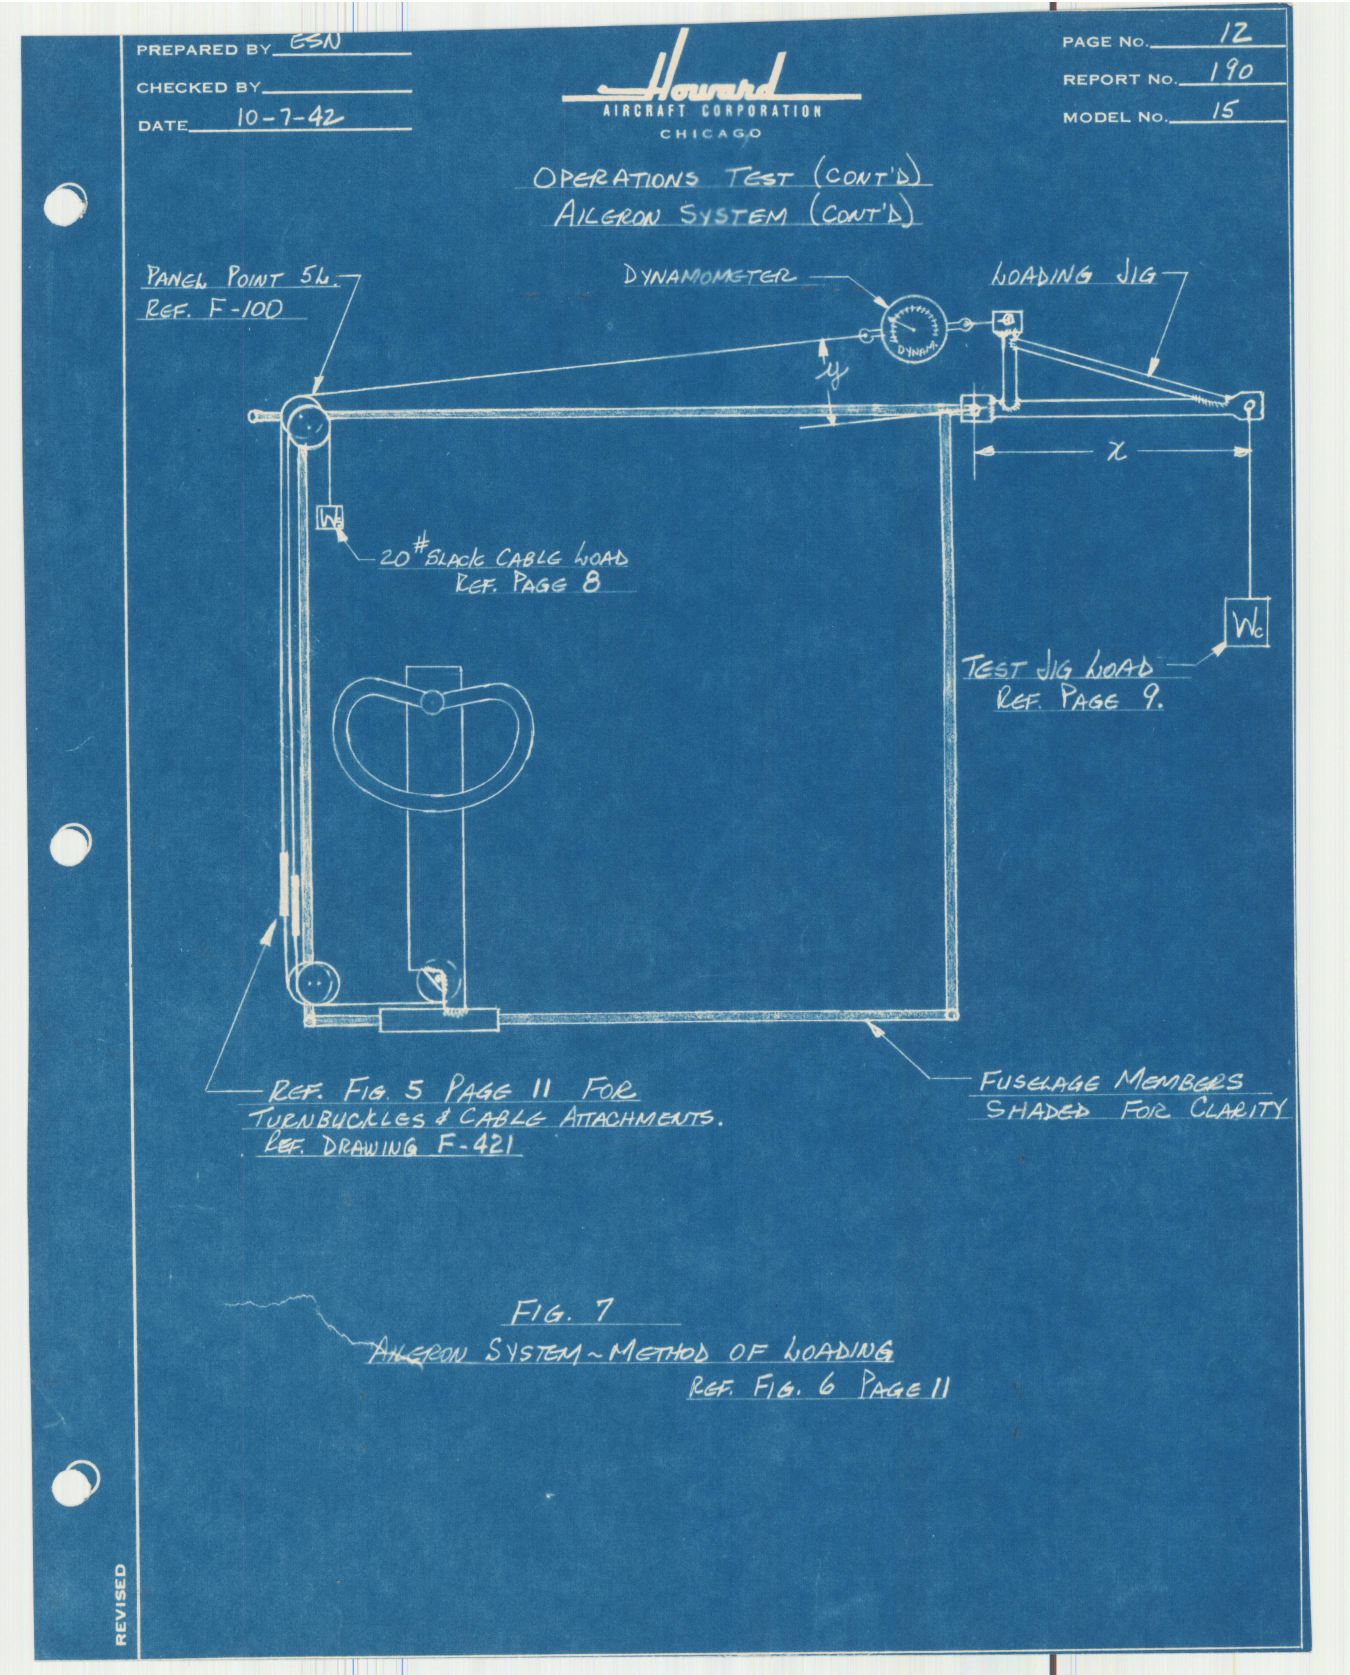 PREPARED BY ESN
CHECKED BY
DATE 10-7-42
Howard
AIRCRAFT CORPORATION
CHICAGO
PAGE No. 12
REPORT No. 190
MODEL No. 15
OPERATIONS TEST (CONT'D)
AILERON SYSTEM (CONT'D)
PANEL POINT 5L.
REF. F-100
DYNAMOMETER
LOADING JIG
DYNAM.
y
x
Ws
20# SLACK CABLE LOAD
REF. PAGE 8
Wc
TEST JIG LOAD
REF. PAGE 9.
REF. FIG. 5 PAGE 11 FOR
TURNBUCKLES & CABLE ATTACHMENTS.
REF. DRAWING F-421
FUSELAGE MEMBERS
SHADED FOR CLARITY
FIG. 7
AILERON SYSTEM ~ METHOD OF LOADING
REF. FIG. 6 PAGE 11
REVISED